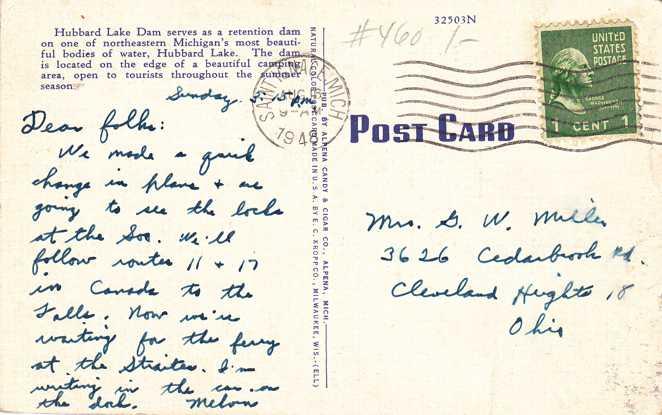 Hubbard Lake Dam serves as a retention dam
on one of northeastern Michigan's most beauti-
ful bodies of water, Hubbard Lake. The dam
is located on the edge of a beautiful camping
area, open to tourists throughout the summer
season.
Sunday, 5:15 pm
Dear folks:
We made a quick
change in plans + are
going to see the locks
at the Soo. We'll
follow routes 11 + 17
in Canada to the
Falls. Now we're
waiting for the ferry
at the Straits. I'm
writing in the car on
the dock. Melvin
NATURAL COLOR POST CARD MADE IN U. S. A. BY E. C. KROPP CO., MILWAUKEE, WIS.-(ELL)
PUB. BY ALPENA CANDY & CIGAR CO., ALPENA, MICH.
#460 1-
32503N
SAINT IGNACE, MICH.
AUG 18
9-AM
UNITED
STATES
POSTAGE
GEORGE
WASHINGTON
1 CENT 1
POST CARD
Mrs. G. W. Miller
3626 Cedarbrook Rd.
Cleveland Heights 18
Ohio